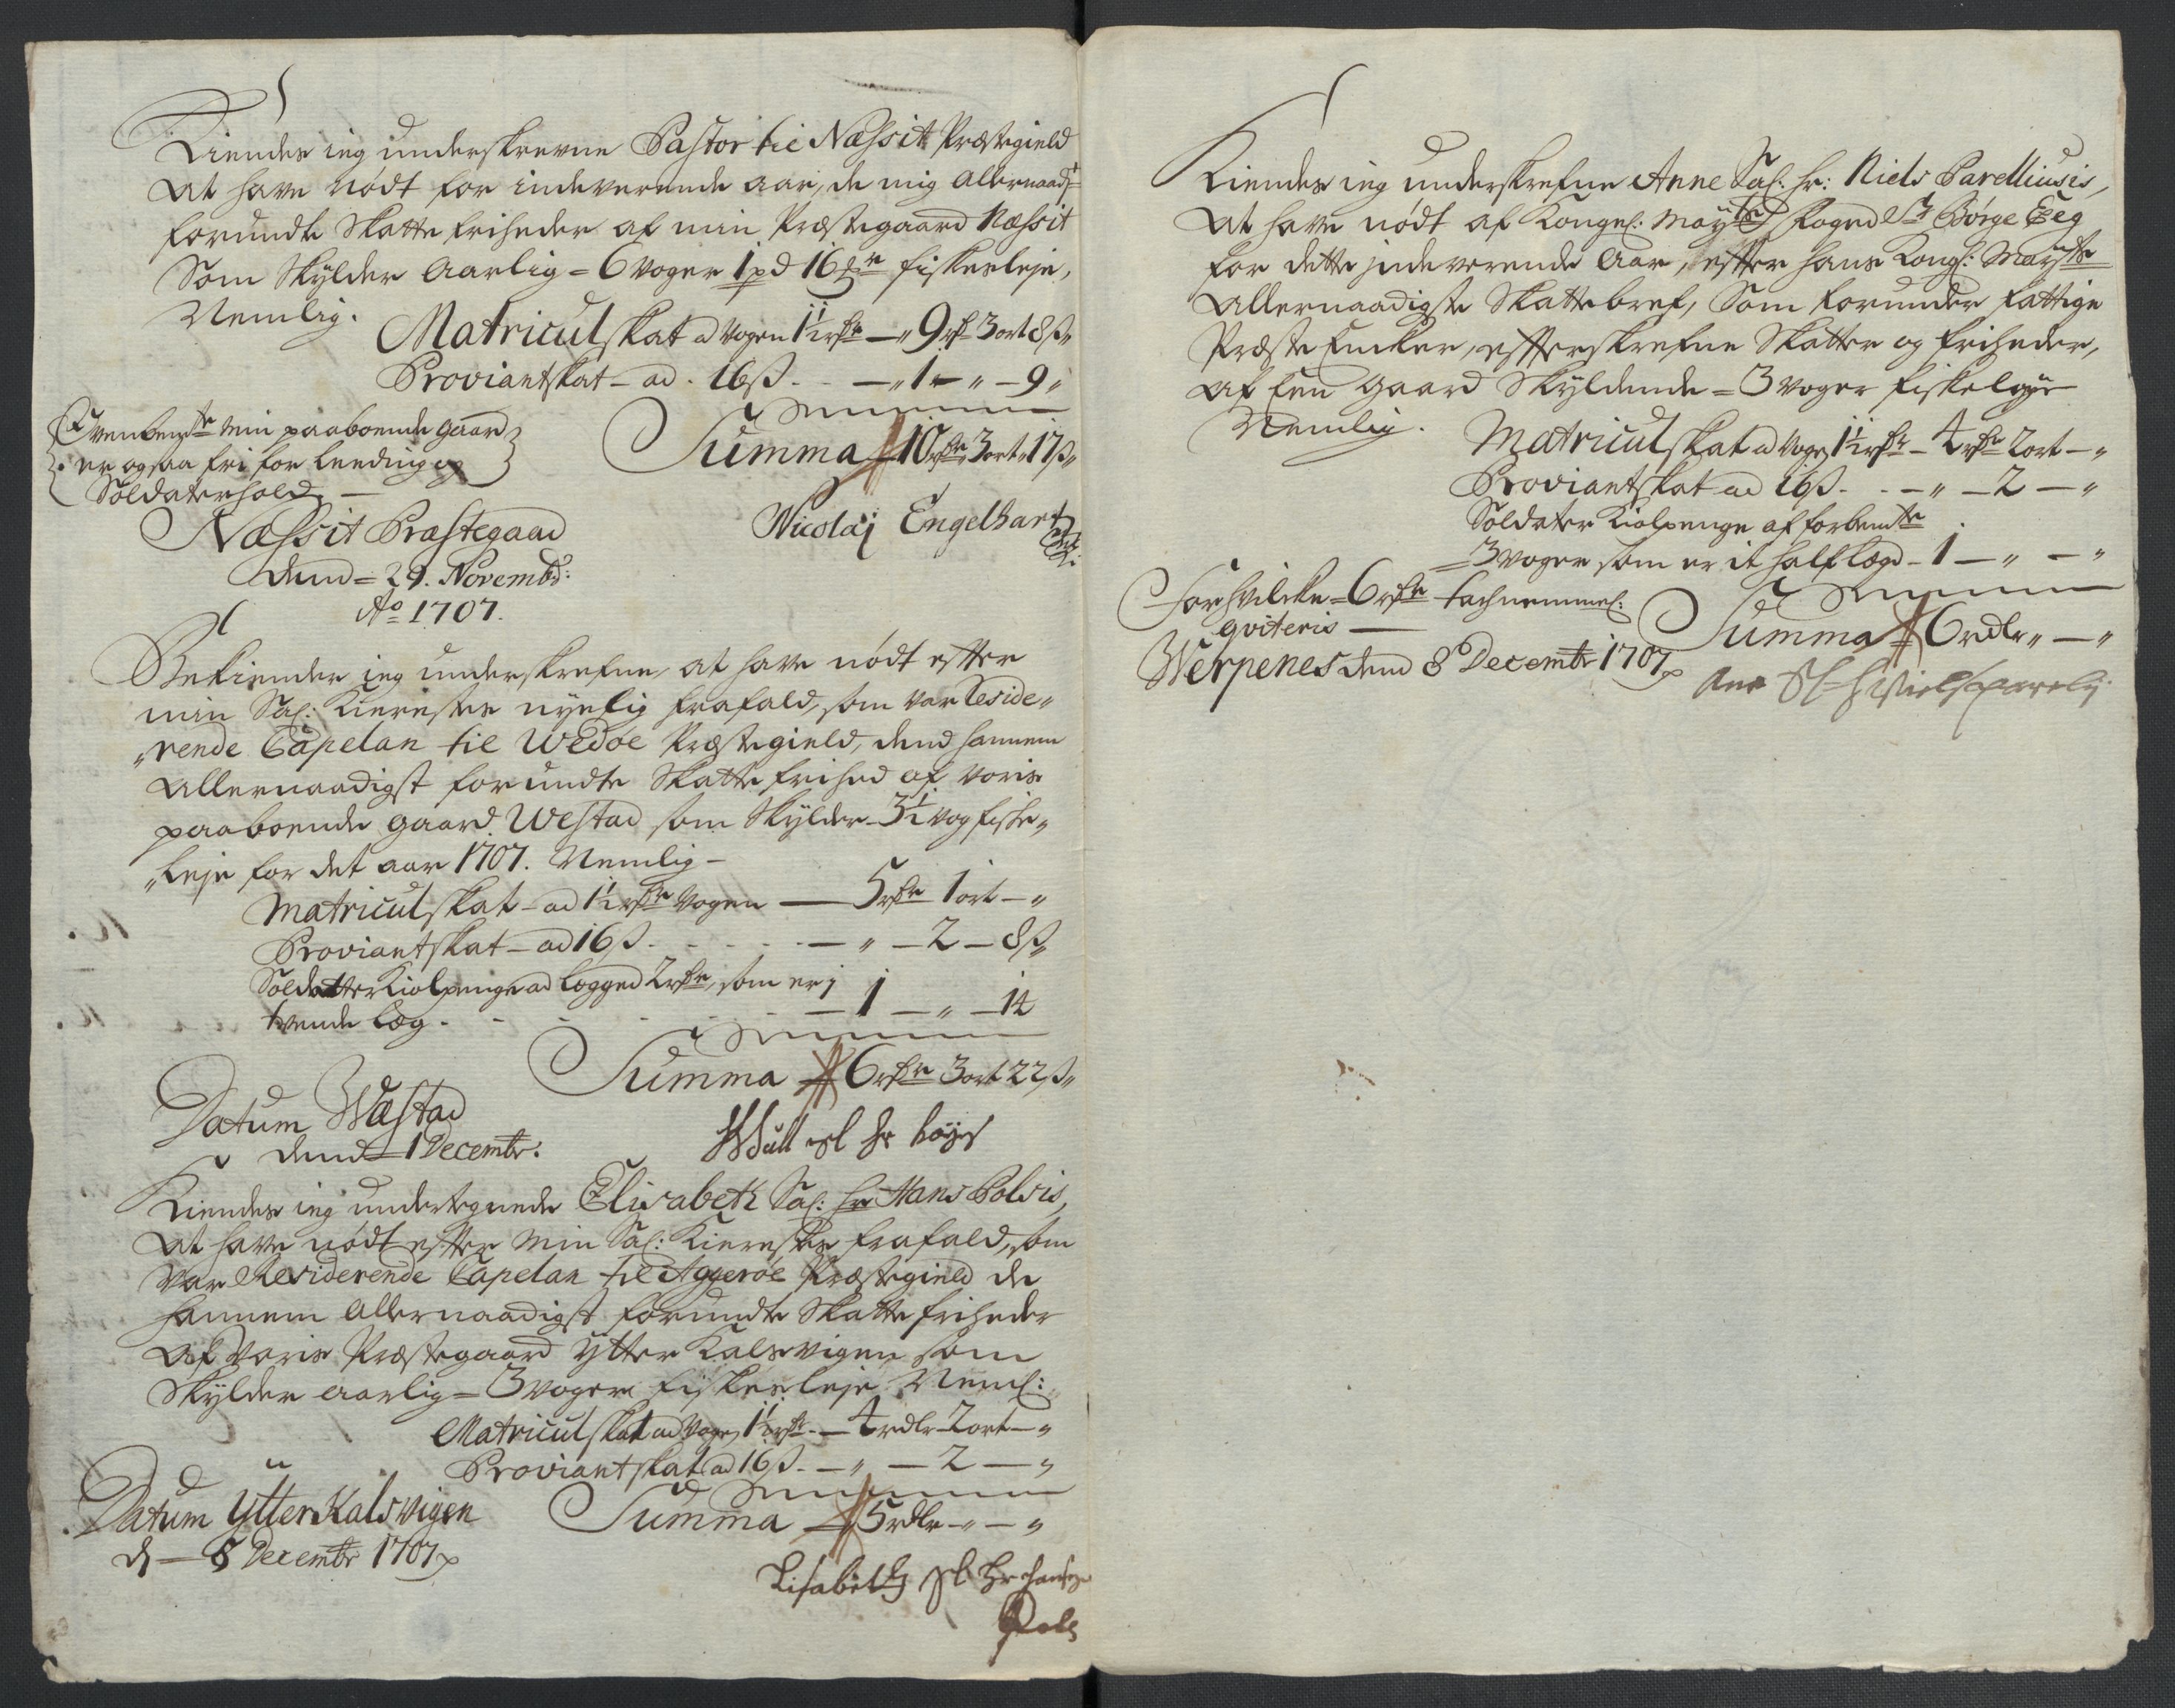 Kiendes ieg underskrevne Pastor til Næssit Præstegield
at have nödt for indeverende aar, de mig allernaad:st
forundte Skatte friheder af min Præstegaard Næssit
Som Skylder Aarlig = 6 Voger 1 pd 16 mr fiskesleje,
Nemlig.
Matricul skat a Vogen 1½ rdr — „ 9 rdr 3 ort 8 s „
Proviantskat - ad . 16 s . . — „ 1 — „ — 9 „
Summa 10 rdr 3 ort 17 s „
Ovenbemte min paaboende gaard
er og saa fri for Leeding og
Soldaterhold —
Næssit Præstegaad
dend = 29. Novembr:
Ao 1707.
Nicolaj Engelhart
Bekiender ieg underskrefne, at have nödt efter
min Sal: Kierestes nyelig frafald, som var Reside„
„rende Capelan til Wedöe Præstegield, dend hannem
allernaadigst forundte Skatte frihed af voris
paaboende gaard Westad som Skylder 3½ vog fiske„
„leje for det aar 1707. Nemlig —
Matricul skat - ad 1½ rdr Vogen — 5 rdr 1 ort — „
Proviantskat - ad 16 s . . . . — „ — 2 — 8 s „
Soldatter Kiolpenge ad Legged 2 rdr, som er i
tvende Læg . . . . — 1 — „ — 14
Summa 6 rdr 3 ort 22 s „
Datum Wæstad
dend 1 Decembr:
sl hr
Kiendes ieg undertegnede Elisabeth Sal: hr Hans Polsis,
at have nödt efter min Sal: Kierestes frafald, som
var Residerende Capelan til Aggeröe Præstegield de
hannem allernaadigst forundte Skatte friheder
af voris Præstegaard ytter Kalsvigen som
Skylder aarlig = 3 Voger fiskesleje Neml:
Matricul skat ad Voge 1½ rdr. — 4 rdlr 2 ort — „
Proviantskat ad 16 s. — „ — 2 — „
Summa 5 rdlr — „ — „
Datum Ytter Kalsvigen
d — 8 Decembr 1707
Lisabeth sl hr hanses
Pols
Kiendes ieg underskrefne Anne Sal: hr: Niels Parelliusis,
at have nödt af Kongel: Mayts foged Sr Börge Eeg
for dette indeverende Aar, efter hans Kongl: Mayts
allernaadigste Skattebref, Som forunder fattige
Præste Encker, efterskrefne Skatter og friheder,
af Een gaard Skyldende = 3 Voger fiskeleye
Nemlig.
Matricul skat a Voge 1½ rdr — 4 rdr 2 ort — „
Proviantskat ad 16 s . . — „ — 2 — „
Soldater Kiolpenge af forbemte
= 3 voger som er it half Lægd - 1 — „ — „
Summa 6 rdlr „ — „
for hvilcke = 6 rdr tachnemmel:
qviteris —
Werpenes dend 8 Decembr 1707
Ane Sl hr Niels parelij